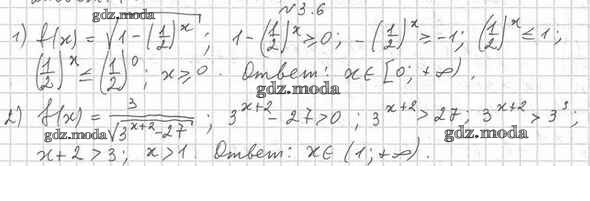 №3.6
gdz.moda
1) f(x) = √(1-(1/2)^x) ; 1-(1/2)^x ≥ 0; -(1/2)^x ≥ -1; (1/2)^x ≤ 1;
(1/2)^x ≤ (1/2)^0; x ≥ 0. Ответ: x ∈ [0; +∞).
gdz.moda
2) f(x) = 3/√(3^(x+2)-27) ; 3^(x+2) - 27 > 0; 3^(x+2) > 27; 3^(x+2) > 3^3;
gdz.moda gdz.moda
x+2 > 3; x > 1. Ответ: x ∈ (1; +∞).